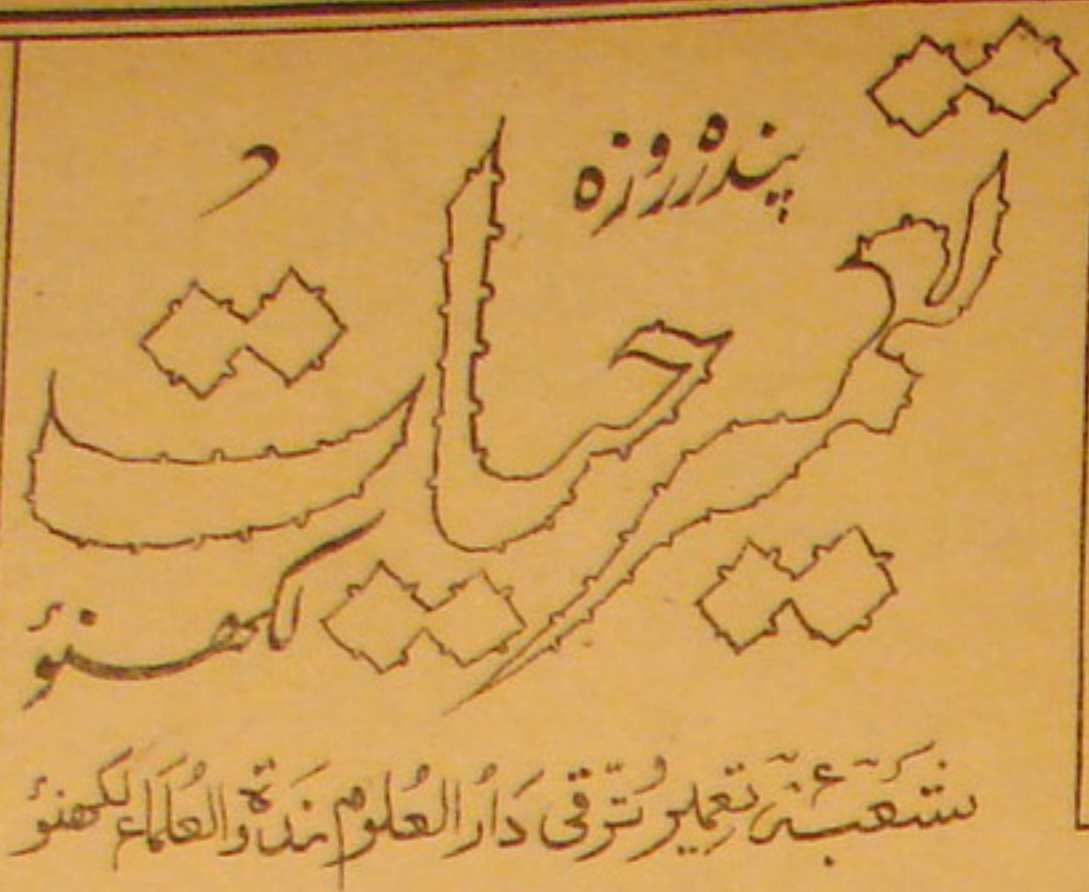 پندرہ روزہ
تعمیر حیات
لکھنؤ
شعبۂ تعمیر و ترقی دارالعلوم ندوۃ العلماء لکھنؤ